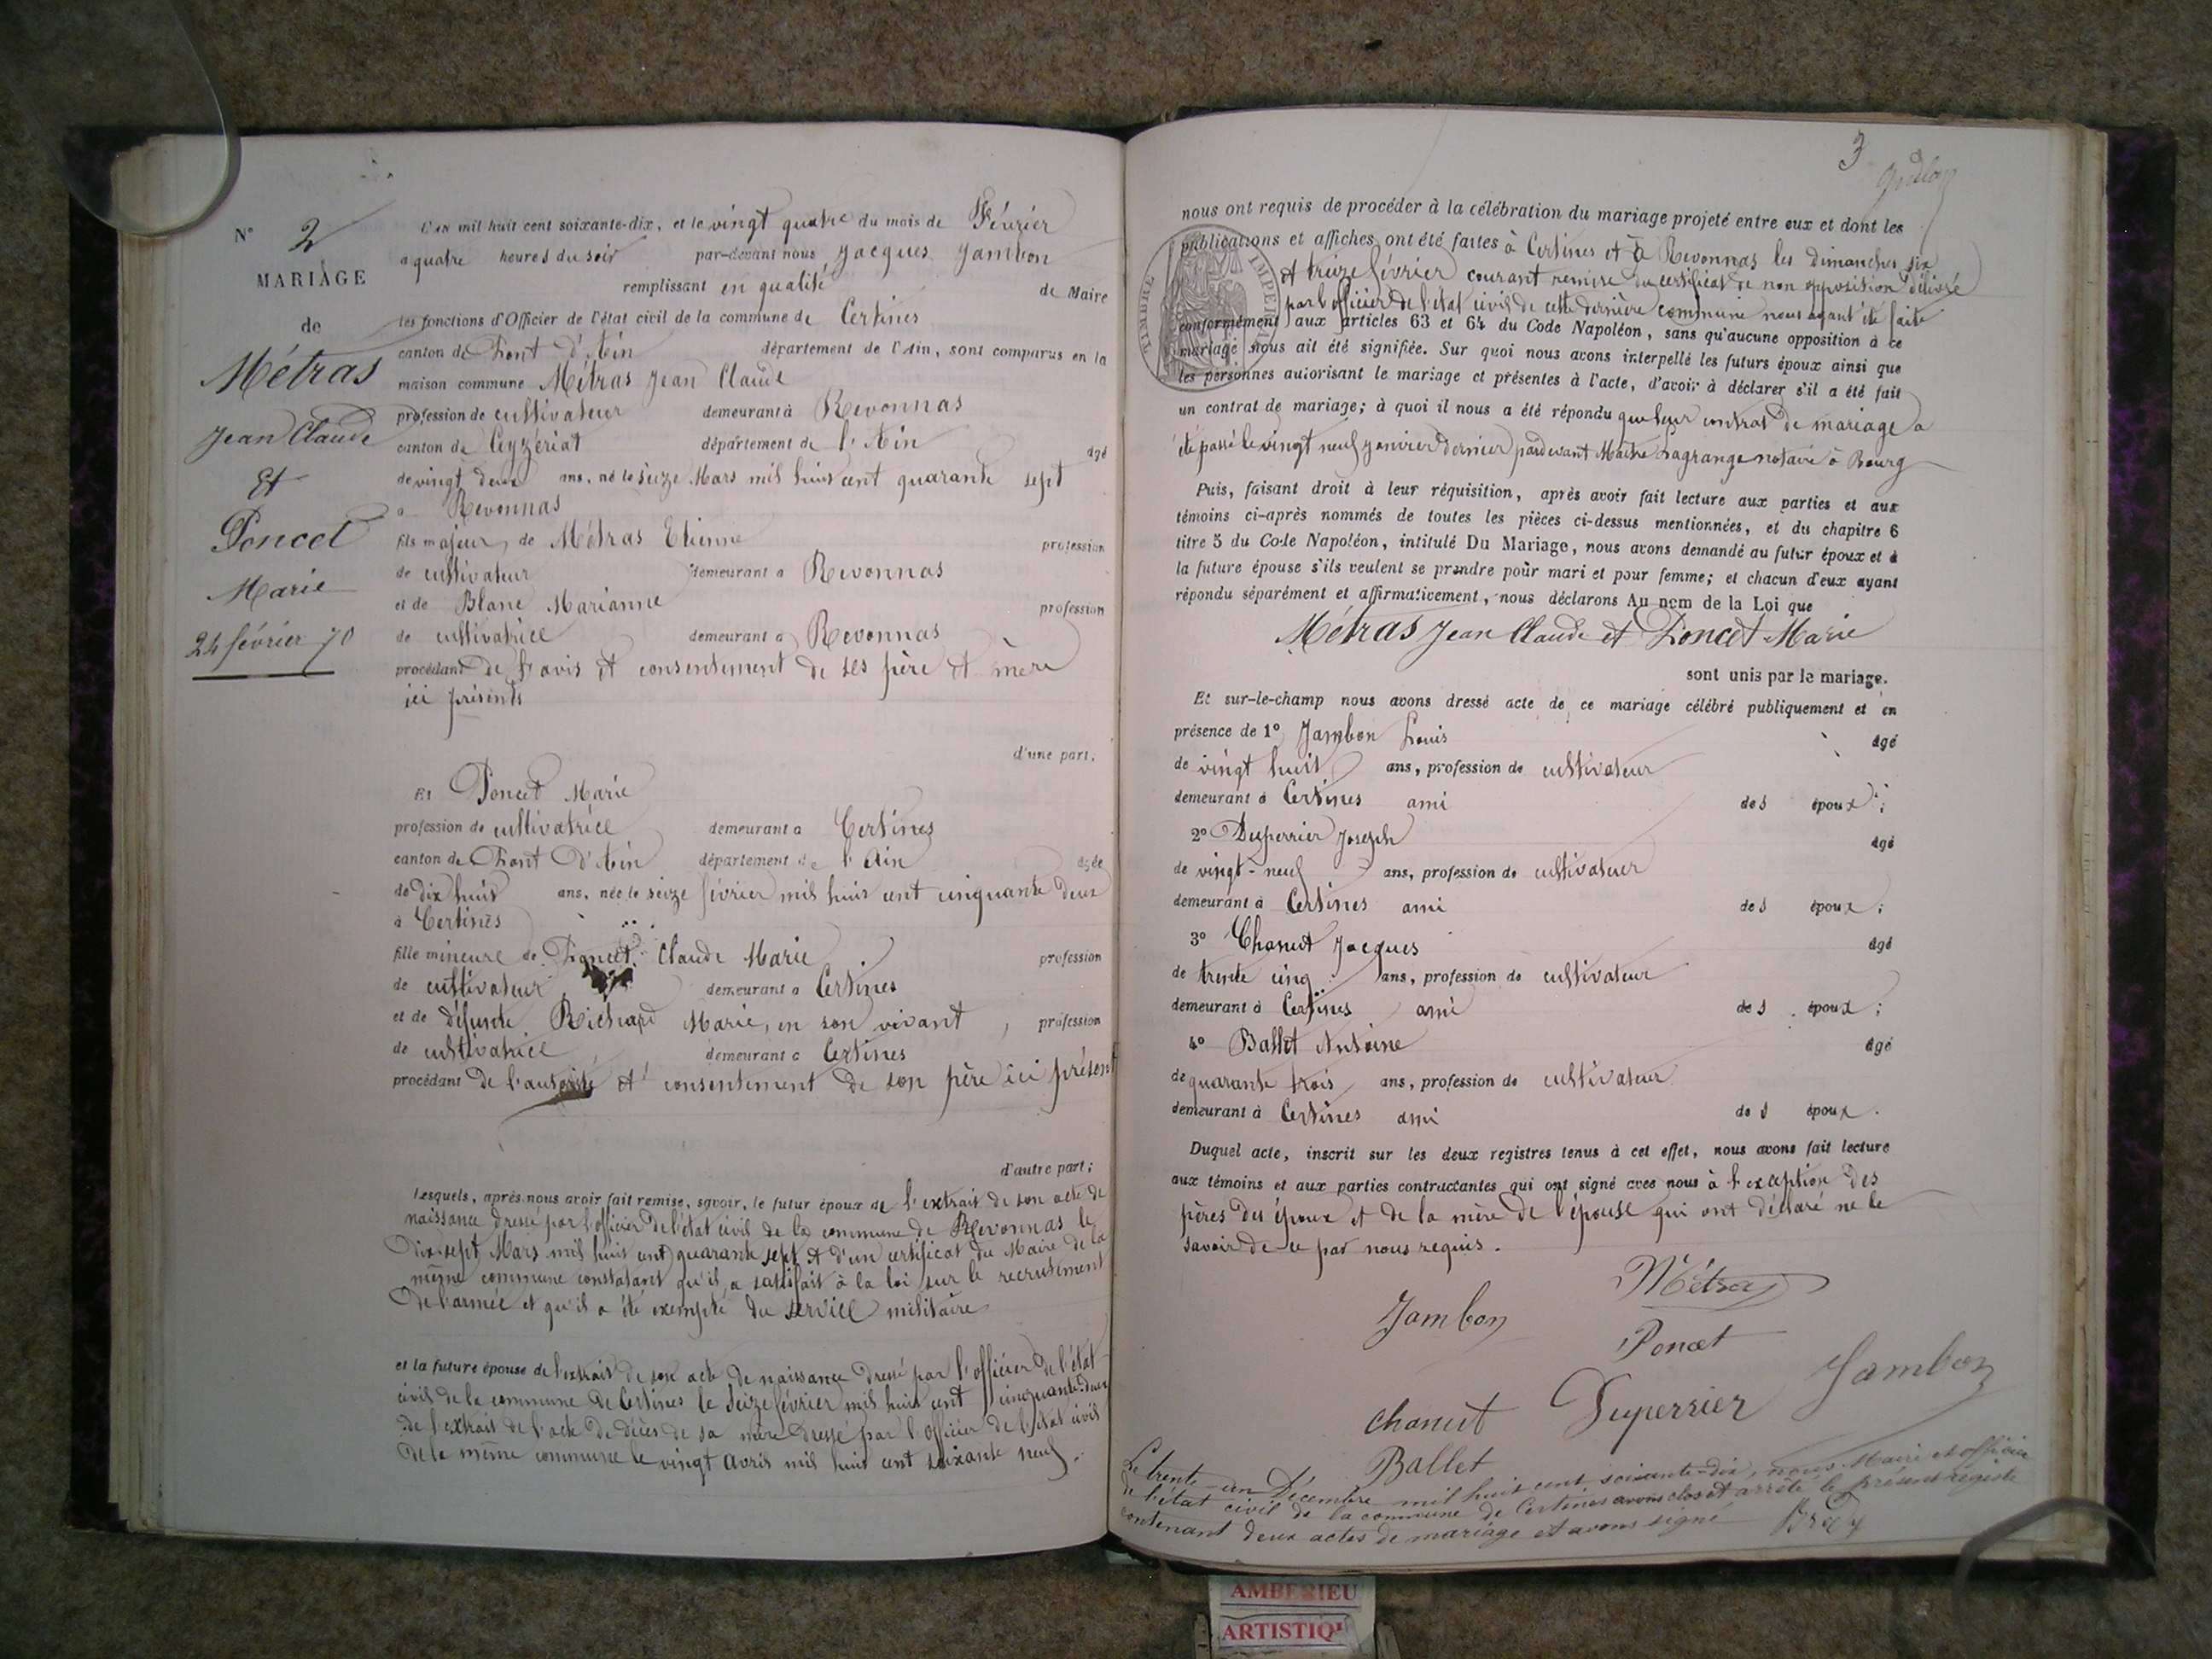 N° 2
MARIAGE
de
Métras
Jean Claude
Et
Poncet
Marie
24 février 70
L'an mil huit cent soixante-dix, et le vingt quatre du mois de Février
a quatre heures du soir par-devant nous Jacques Jambon
remplissant en qualité de Maire
les fonctions d'Officier de l'état civil de la commune de Certines
canton de Pont d'Ain département de l'Ain, sont comparus en la
maison commune Métras Jean Claude
profession de cultivateur demeurant à Revonnas
canton de Ceyzériat département de l'Ain âgé
de vingt deux ans, né le seize Mars mil huit cent quarante sept
à Revonnas
fils majeur de Métras Etienne profession
de cultivateur demeurant a Revonnas
et de Blanc Marianne profession
de cultivatrice demeurant a Revonnas
procédant de l'avis et consentement de ses père et mère
ici présents
d'une part.
Et Poncet Marie
profession de cultivatrice demeurant a Certines
canton de Pont d'Ain département de l'Ain âgée
de dix huit ans, née le seize février mil huit cent cinquante deux
à Certines
fille mineure de Poncet Claude Marie profession
de cultivateur demeurant a Certines
et de défunte Richard Marie, en son vivant, profession
de cultivatrice demeurant a Certines
procédant de l'autorité et consentement de son père ici présent
d'autre part;
lesquels, après nous avoir fait remise, savoir, le futur époux de l'extrait de son acte de
naissance dressé par l'officier de l'état civil de la commune de Revonnas le
Dix-sept Mars mil huit cent quarante sept et d'un certificat du Maire de la
même commune constatant qu'il a satisfait à la loi sur le recrutement
de l'armée et qu'il a été exempté du service militaire
et la future épouse de l'extrait de son acte de naissance dressé par l'officier de l'état
civil de la commune de Certines le Seize février mil huit cent cinquante-deux
de l'extrait de l'acte de décès de sa mère dressé par l'officier de l'état civil
de la même commune le vingt avril mil huit cent soixante neuf.
3
nous ont requis de procéder à la célébration du mariage projeté entre eux et dont les
publications et affiches ont été faites à Certines et à Revonnas les dimanches six
et treize février courant remise du certificat de non opposition délivré
par l'officier de l'état civil de cette dernière commune nous ayant été faite
TIMBRE IMPERIAL
conformément aux articles 63 et 64 du Code Napoléon, sans qu'aucune opposition à ce
mariage nous ait été signifiée. Sur quoi nous avons interpellé les futurs époux ainsi que
les personnes autorisant le mariage et présentes à l'acte, d'avoir à déclarer s'il a été fait
un contrat de mariage; à quoi il nous a été répondu que leur contrat de mariage a
été passé le vingt neuf janvier dernier pardevant Maître Lagrange notaire à Bourg
Puis, faisant droit à leur réquisition, après avoir fait lecture aux parties et aux
témoins ci-après nommés de toutes les pièces ci-dessus mentionnées, et du chapitre 6
titre 5 du Code Napoléon, intitulé Du Mariage, nous avons demandé au futur époux et à
la future épouse s'ils veulent se prendre pour mari et pour femme; et chacun d'eux ayant
répondu séparément et affirmativement, nous déclarons Au nom de la Loi que
Métras Jean Claude et Poncet Marie
sont unis par le mariage.
Et sur-le-champ nous avons dressé acte de ce mariage célébré publiquement et en
présence de 1° Jambon Louis âgé
de vingt huit ans, profession de cultivateur
demeurant à Certines ami des époux;
2° Duperrier Joseph âgé
de vingt-neuf ans, profession de cultivateur
demeurant à Certines ami des époux;
3° Chanut Jacques âgé
de trente cinq ans, profession de cultivateur
demeurant à Certines ami des époux;
4° Ballet Antoine âgé
de quarante trois ans, profession de cultivateur
demeurant à Certines ami des époux.
Duquel acte, inscrit sur les deux registres tenus à cet effet, nous avons fait lecture
aux témoins et aux parties contractantes qui ont signé avec nous à l'exception des
pères des époux et de la mère de l'épouse qui ont déclaré ne le
savoir de ce par nous requis.
Métras
Jambon
Poncet
Jambon
Chanut Duperrier
Ballet
Le trente-un Décembre mil huit cent soixante-dix, nous Maire et officier
de l'état civil de la commune de Certines avons clos et arrêté le présent registre
contenant deux actes de mariage et avons signé
AMBERIEU
ARTISTIQ